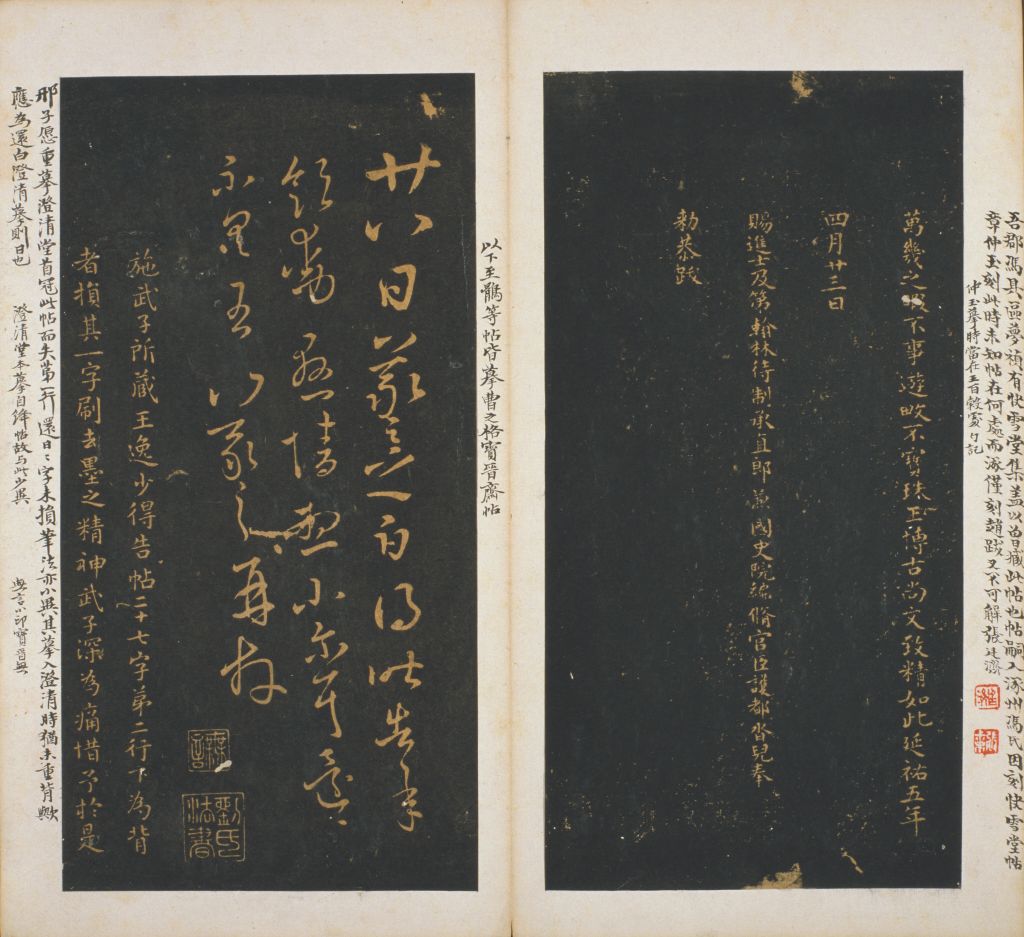 吾郡馮具區夢禎有快雪堂集盖以曾藏此帖也帖嗣入涿州馮氏因刻快雪堂帖
章仲玉刻此時未知帖在何處而涿僅刻趙跋又不可解張廷濟
仲玉摹時當在王百穀處 記
萬幾之暇不事遊畋不寶珠玉博古尚文致精如此延祐五年
四月廿三日
賜進士及第翰林待制承直郎兼國史院編脩官臣護都沓兒奉
勑恭跋
以下至鶻等帖皆摹曹之格寶晉齋帖
廿八日羲之白得昨告承
飲動懸情想小爾耳還
不具王羲之再拜
無言
劉氏法書
施武子所藏王逸少得告帖二十七字第二行下為背
者損其一字刷去墨之精神武子深為痛惜予於是
邢子愿重摹澄清堂首冠此帖而失第一行還日〻字未損筆法亦小異其摹入澄清時猶未重背歟
應為還白澄清摹則日也
澄清堂本摹自絳帖故与此少異
無言小印寶晉無